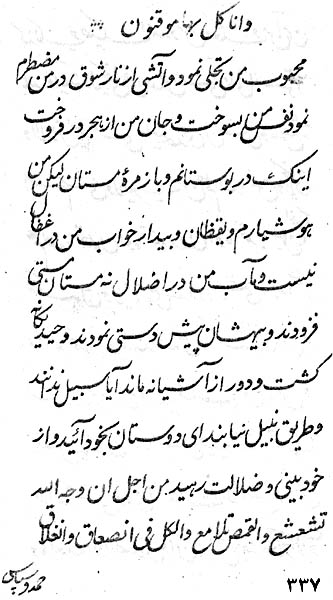 وانا كل بها موقنون
محبوب من تجلی نمود و آتشی از نار شوق در من مضطرم
نمود نفس من بسوخت و جان من از هجر در فروخت
اینک در بوستانم و با زمرهٔ مستان لیکن من
هوشیارم و یقظان و بیدار خواب من در اغفال
نیست و مآب من در اضلال نه مستان مستی
فزودند و بیهشان پیش دستی نمودند وحید یگانه
گشت و دور از آشیانه ماند آیا سبیل ندانند
و طریق نبیل نیابند ای دوستان بخود آئید و از
خود بینی و ضلالت رهید من اجل ان وجه الله
تشعشع والقمص تلامع والكل فی انصعاق وانغلاق
۳۳۷